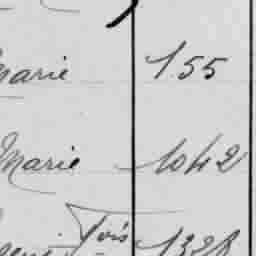 Marie 155
Marie 1042
Frois 1328